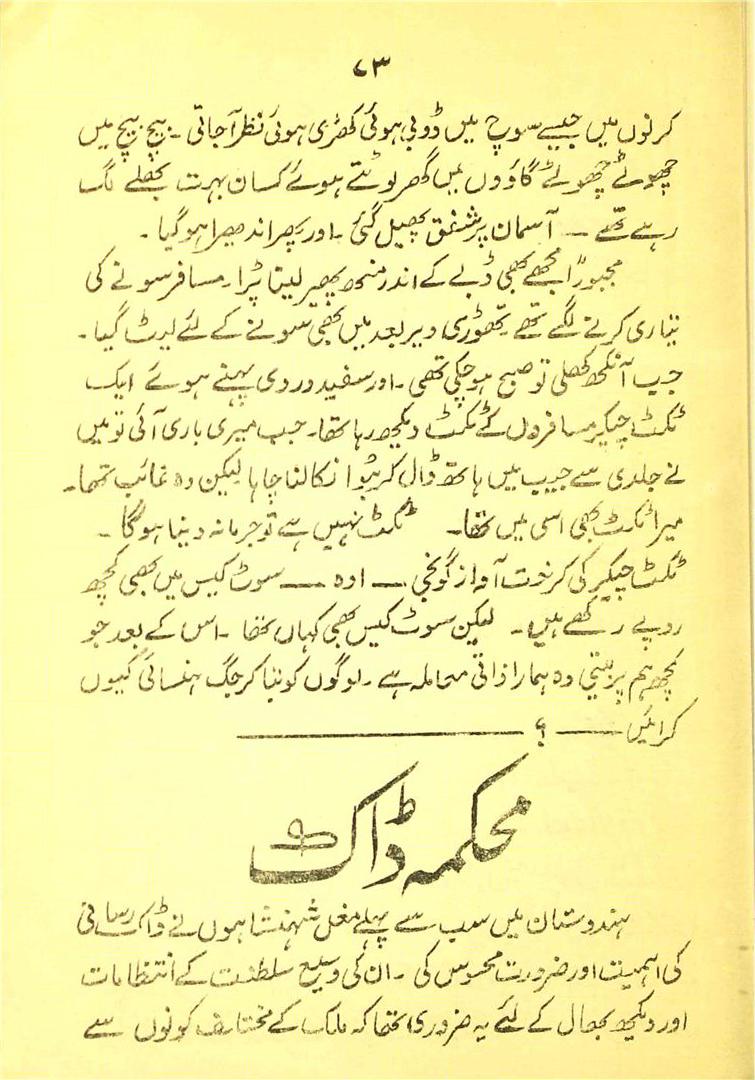 ۷۳
کرنوں میں جیسے سوچ میں ڈوبی ہوئی کھڑی ہوئی نظر آجاتی ۔ بیچ بیچ میں
چھوٹے چھوٹے گاؤوں میں گھر لوٹتے ہوئے کسان بہت بھلے لگ
رہے تھے ــ آسمان پر شفق پھیل گئی ۔ اور پھر اندھیرا ہو گیا ۔
مجبوراً مجھے بھی ڈبے کے اندر منھ پھیر لینا پڑا ۔ مسافر سونے کی
تیاری کرنے لگے تھے تھوڑی دیر بعد میں بھی سونے کے لئے لیٹ گیا ۔
جب آنکھ کھلی تو صبح ہو چکی تھی ۔ اور سفید وردی پہنے ہوئے ایک
ٹکٹ چیکر مسافروں کے ٹکٹ دیکھ رہا تھا ۔ جب میری باری آئی تو میں
نے جلدی سے جیب میں ہاتھ ڈال کر بٹوا نکالنا چاہا لیکن وہ غائب تھا ۔
میرا ٹکٹ بھی اسی میں تھا ۔ ٹکٹ نہیں ہے تو جرمانہ دینا ہوگا ۔
ٹکٹ چیکر کی کرخت آواز گونجی ــ اوہ ــ سوٹ کیس میں بھی کچھ
روپے رکھے ہیں ۔ لیکن سوٹ کیس بھی کہاں تھا ۔ اس کے بعد جو
کچھ ہم پر بیتی وہ ہمارا ذاتی معاملہ ہے ۔ لوگوں کو بتا کر جگ ہنسائی کیوں
کرائیں ــــ ؟ ــــــــــــ
محکمہ ڈاک
ہندوستان میں سب سے پہلے مغل شہنشاہوں نے ڈاک رسانی
کی اہمیت اور ضرورت محسوس کی ۔ ان کی وسیع سلطنت کے انتظامات
اور دیکھ بھال کے لئے یہ ضروری تھا کہ ملک کے مختلف کونوں سے